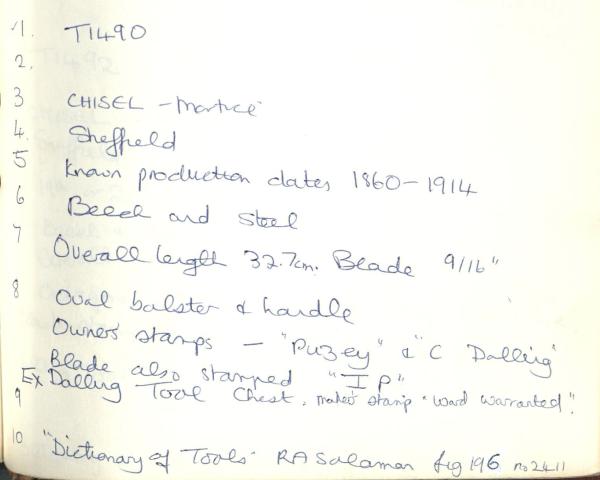 1. T1490
2.
3 CHISEL - Mortice
4. Sheffield
5 Known production dates 1860-1914
6 Beech and Steel
7 Overall length 32.7cm. Blade 9/16"
8 Oval balster & handle
Owners stamps - "Puzey" & "C Dalling"
Blade also stamped "I P"
Ex Dalling Tool Chest, makers stamp "Ward Warranted".
9
10 "Dictionary of Tools" RA Salaman fig 196 no 2411